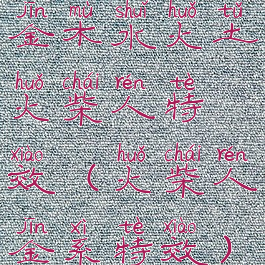 jīn mù shuǐ huǒ tǔ
金木水火土
huǒ chái rén tè
火柴人特
xiào huǒ chái rén
效（火柴人
jīn xì tè xiào
金系特效）